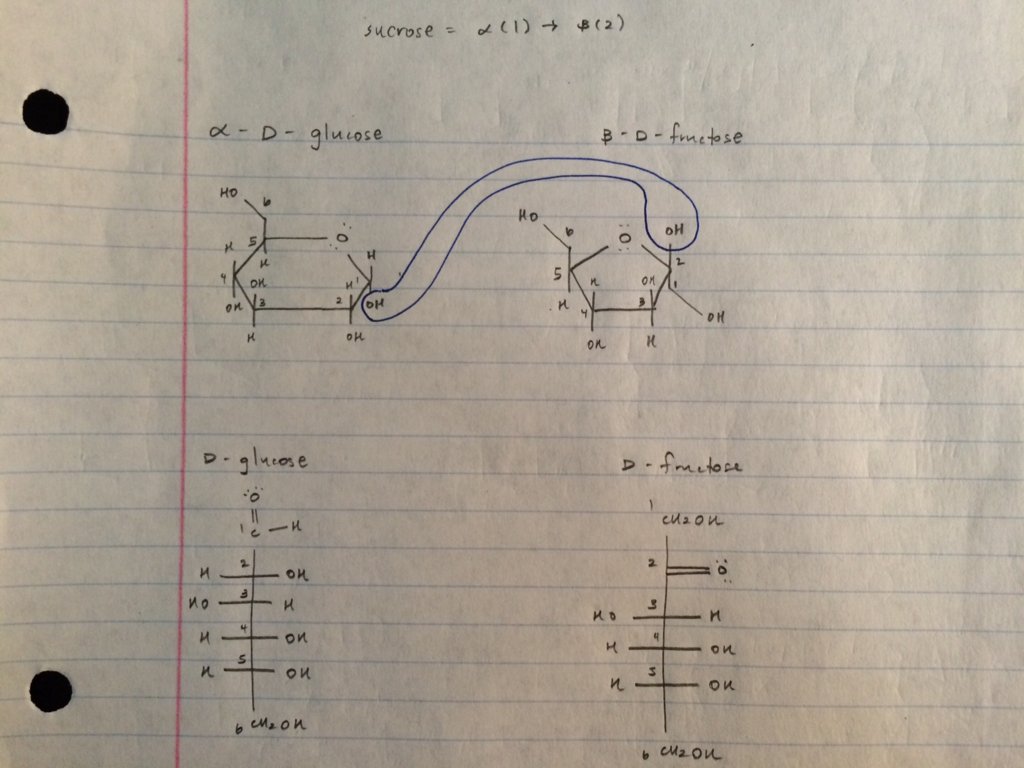 sucrose = α(1) → β(2)
α - D - glucose
β - D - fructose
HO 6
5 O H
H H
4 OH H 1
OH 3 2 OH
H OH
HO 6 O OH
5 2
H H OH 1
4 3 OH
OH H
D - glucose
O
1 C - H
H 2 OH
HO 3 H
H 4 OH
H 5 OH
6 CH2OH
D - fructose
1 CH2OH
2 O
HO 3 H
H 4 OH
H 5 OH
6 CH2OH